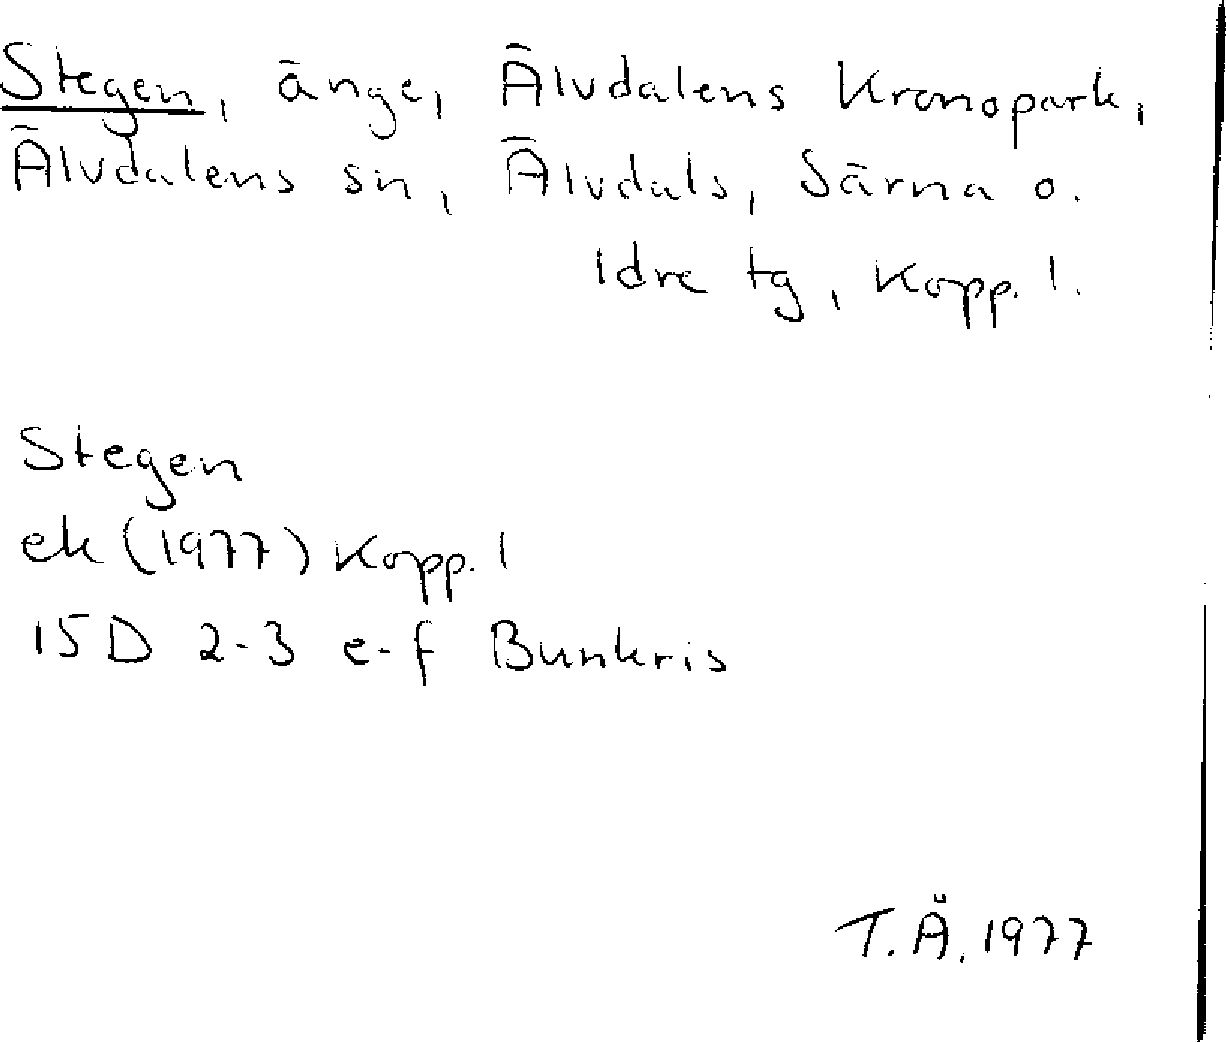 Stegen, änge, Älvdalens Kronopark,
Älvdalens sn, Älvdals, Särna o.
Idre tg, Kopp. l.
Stegen
ek (1977) Kopp. l
15D 2-3 e-f Bunkris
T.Ä. 1977